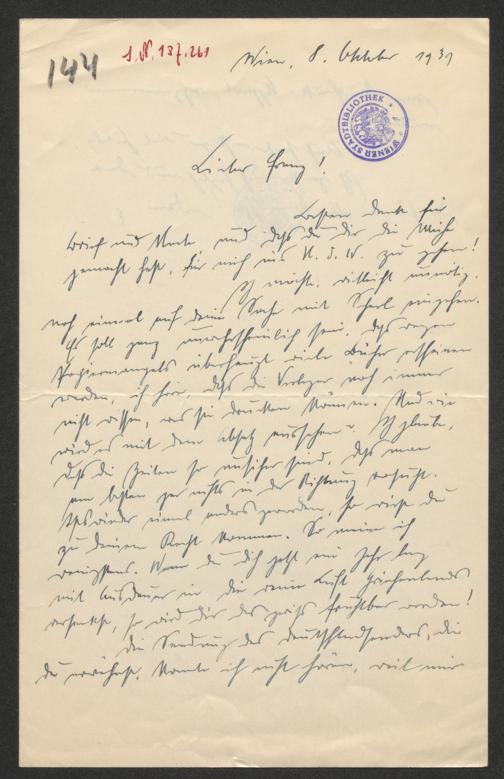 144
I.N. 197.261
Wien, 8. Oktober 1939
WIENER STADTBIBLIOTHEK
Lieber Franz!
Besten Dank für
Brief und Karte, und daß du dir die Mühe
gemacht hast, für mich ins zu gehen!
Ich möchte, vielleicht unnötig,
noch einmal auf deine Sache mit eingehen.
Es soll ganz unwahrscheinlich sein, daß wegen
Papiermangels überhaupt viele Bücher erscheinen
werden, ich höre, daß die Verleger noch immer
nicht wissen, was sie drucken können. Und wie
wird es mit dem Absatz aussehen? Ich glaube,
daß die Zeiten so unsicher sind, daß man
am besten gar nichts in der Richtung versucht.
Ist wieder einmal anders geworden, so wirst du
zu deinem Recht kommen. So meine ich
wenigstens. Wenn du dich jetzt ein Jahr lang
mit Ausdauer in die reine Luft Griechenlands
versenkst, so wird dir das gewiß fruchtbar werden!
Die Sendung des Deutschlandsenders, die
du erwähnst, konnte ich nicht hören, weil mir